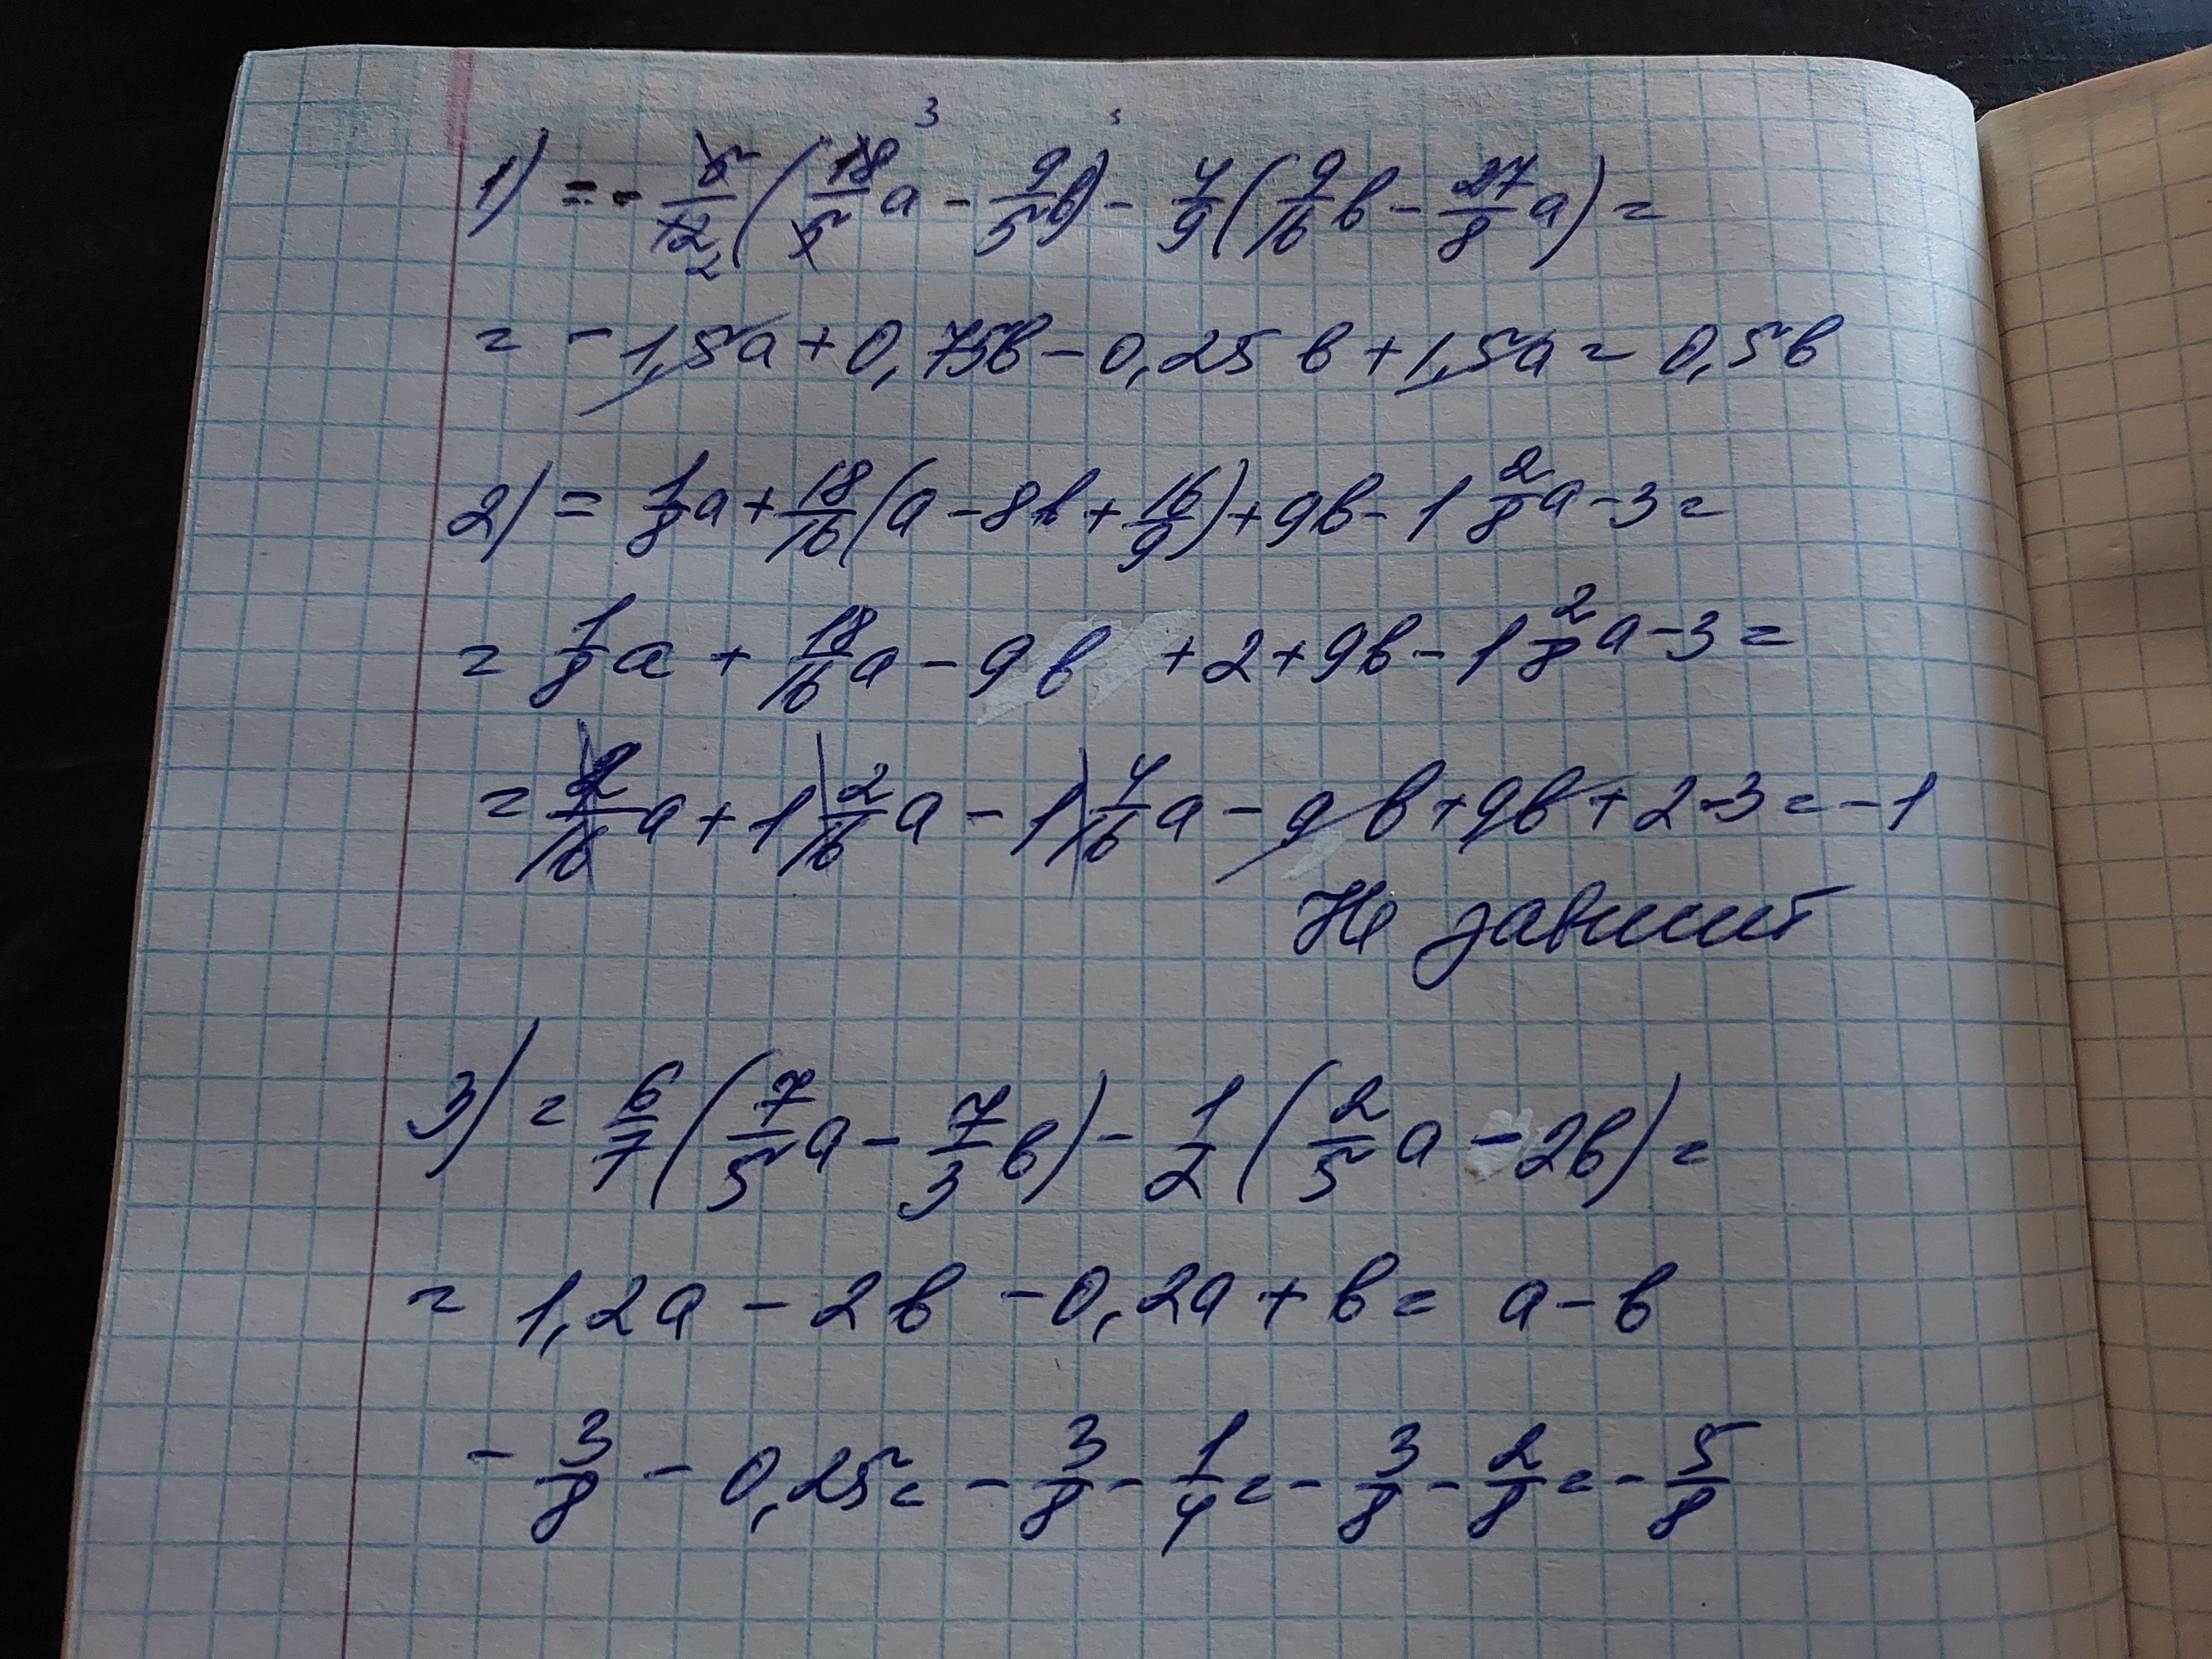 1) = - 5/12 (18/5 a - 9/5 b) - 4/9 (9/16 b - 27/8 a) =
= - 1,5a + 0,75b - 0,25 b + 1,5a = 0,5b
2) = 1/8 a + 18/16 (a - 8b + 16/9) + 9b - 1 2/8 a - 3 =
= 1/8 a + 18/16 a - 9b + 2 + 9b - 1 2/8 a - 3 =
= 2/16 a + 1 2/16 a - 1 4/16 a - 9b + 9b + 2 - 3 = - 1
Не зависит
3) = 6/7 (7/5 a - 7/3 b) - 1/2 (2/5 a - 2b) =
= 1,2a - 2b - 0,2a + b = a - b
- 3/8 - 0,25 = - 3/8 - 1/4 = - 3/8 - 2/8 = - 5/8